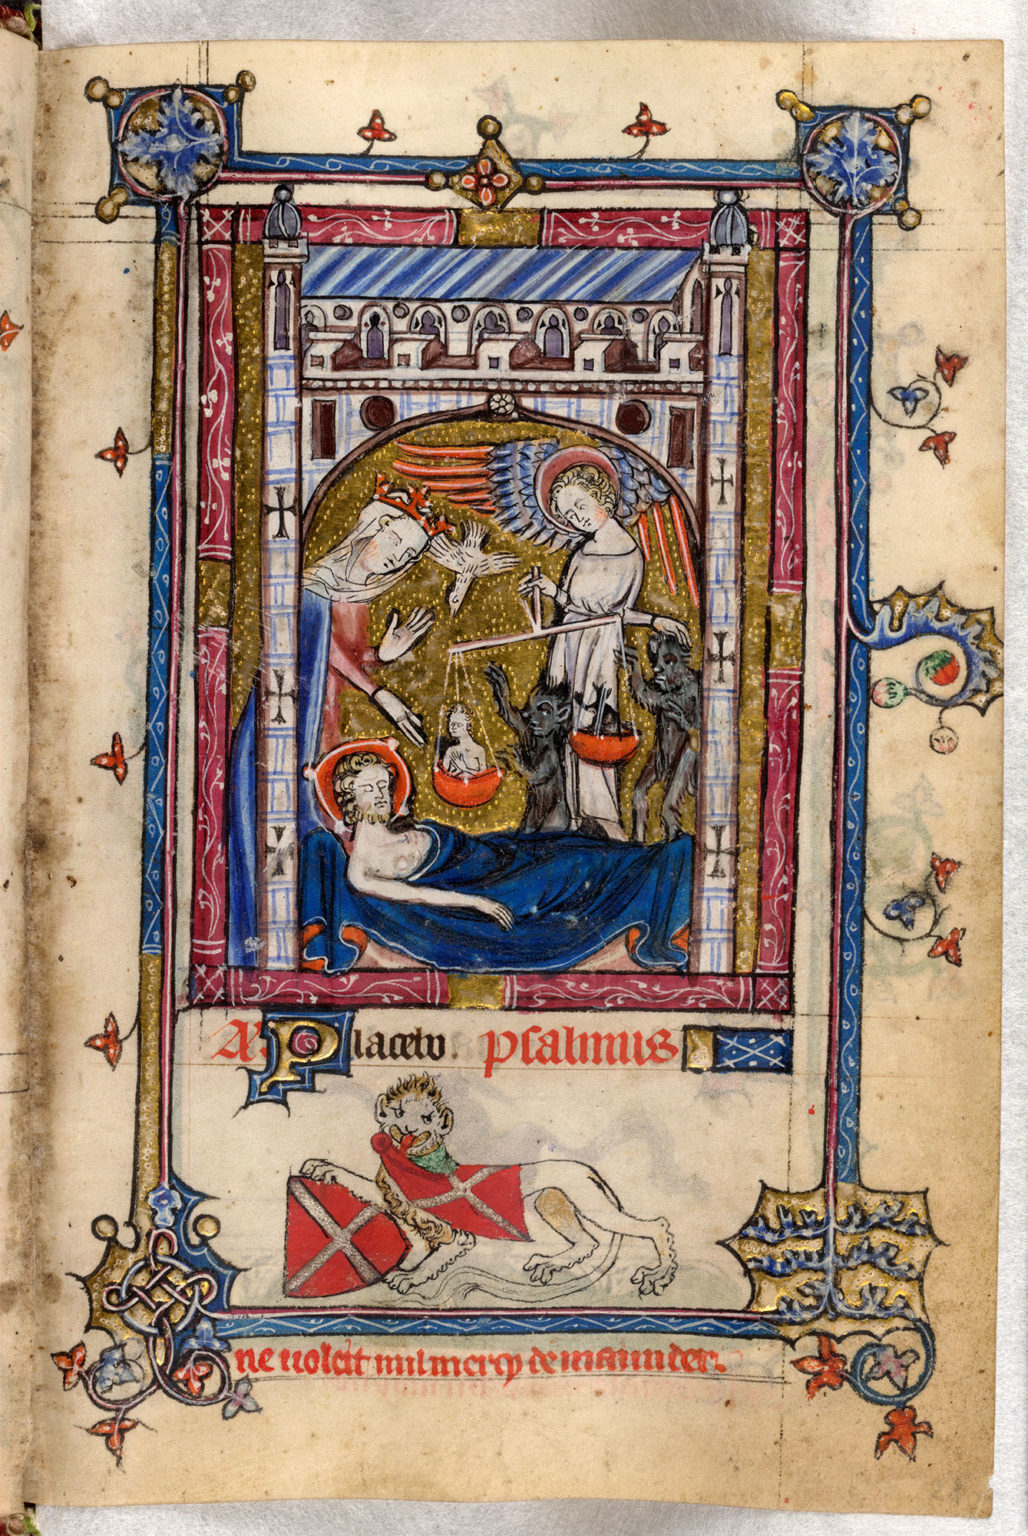 A Placebo. psalmus
ne uoleit nulmercy demaunder.